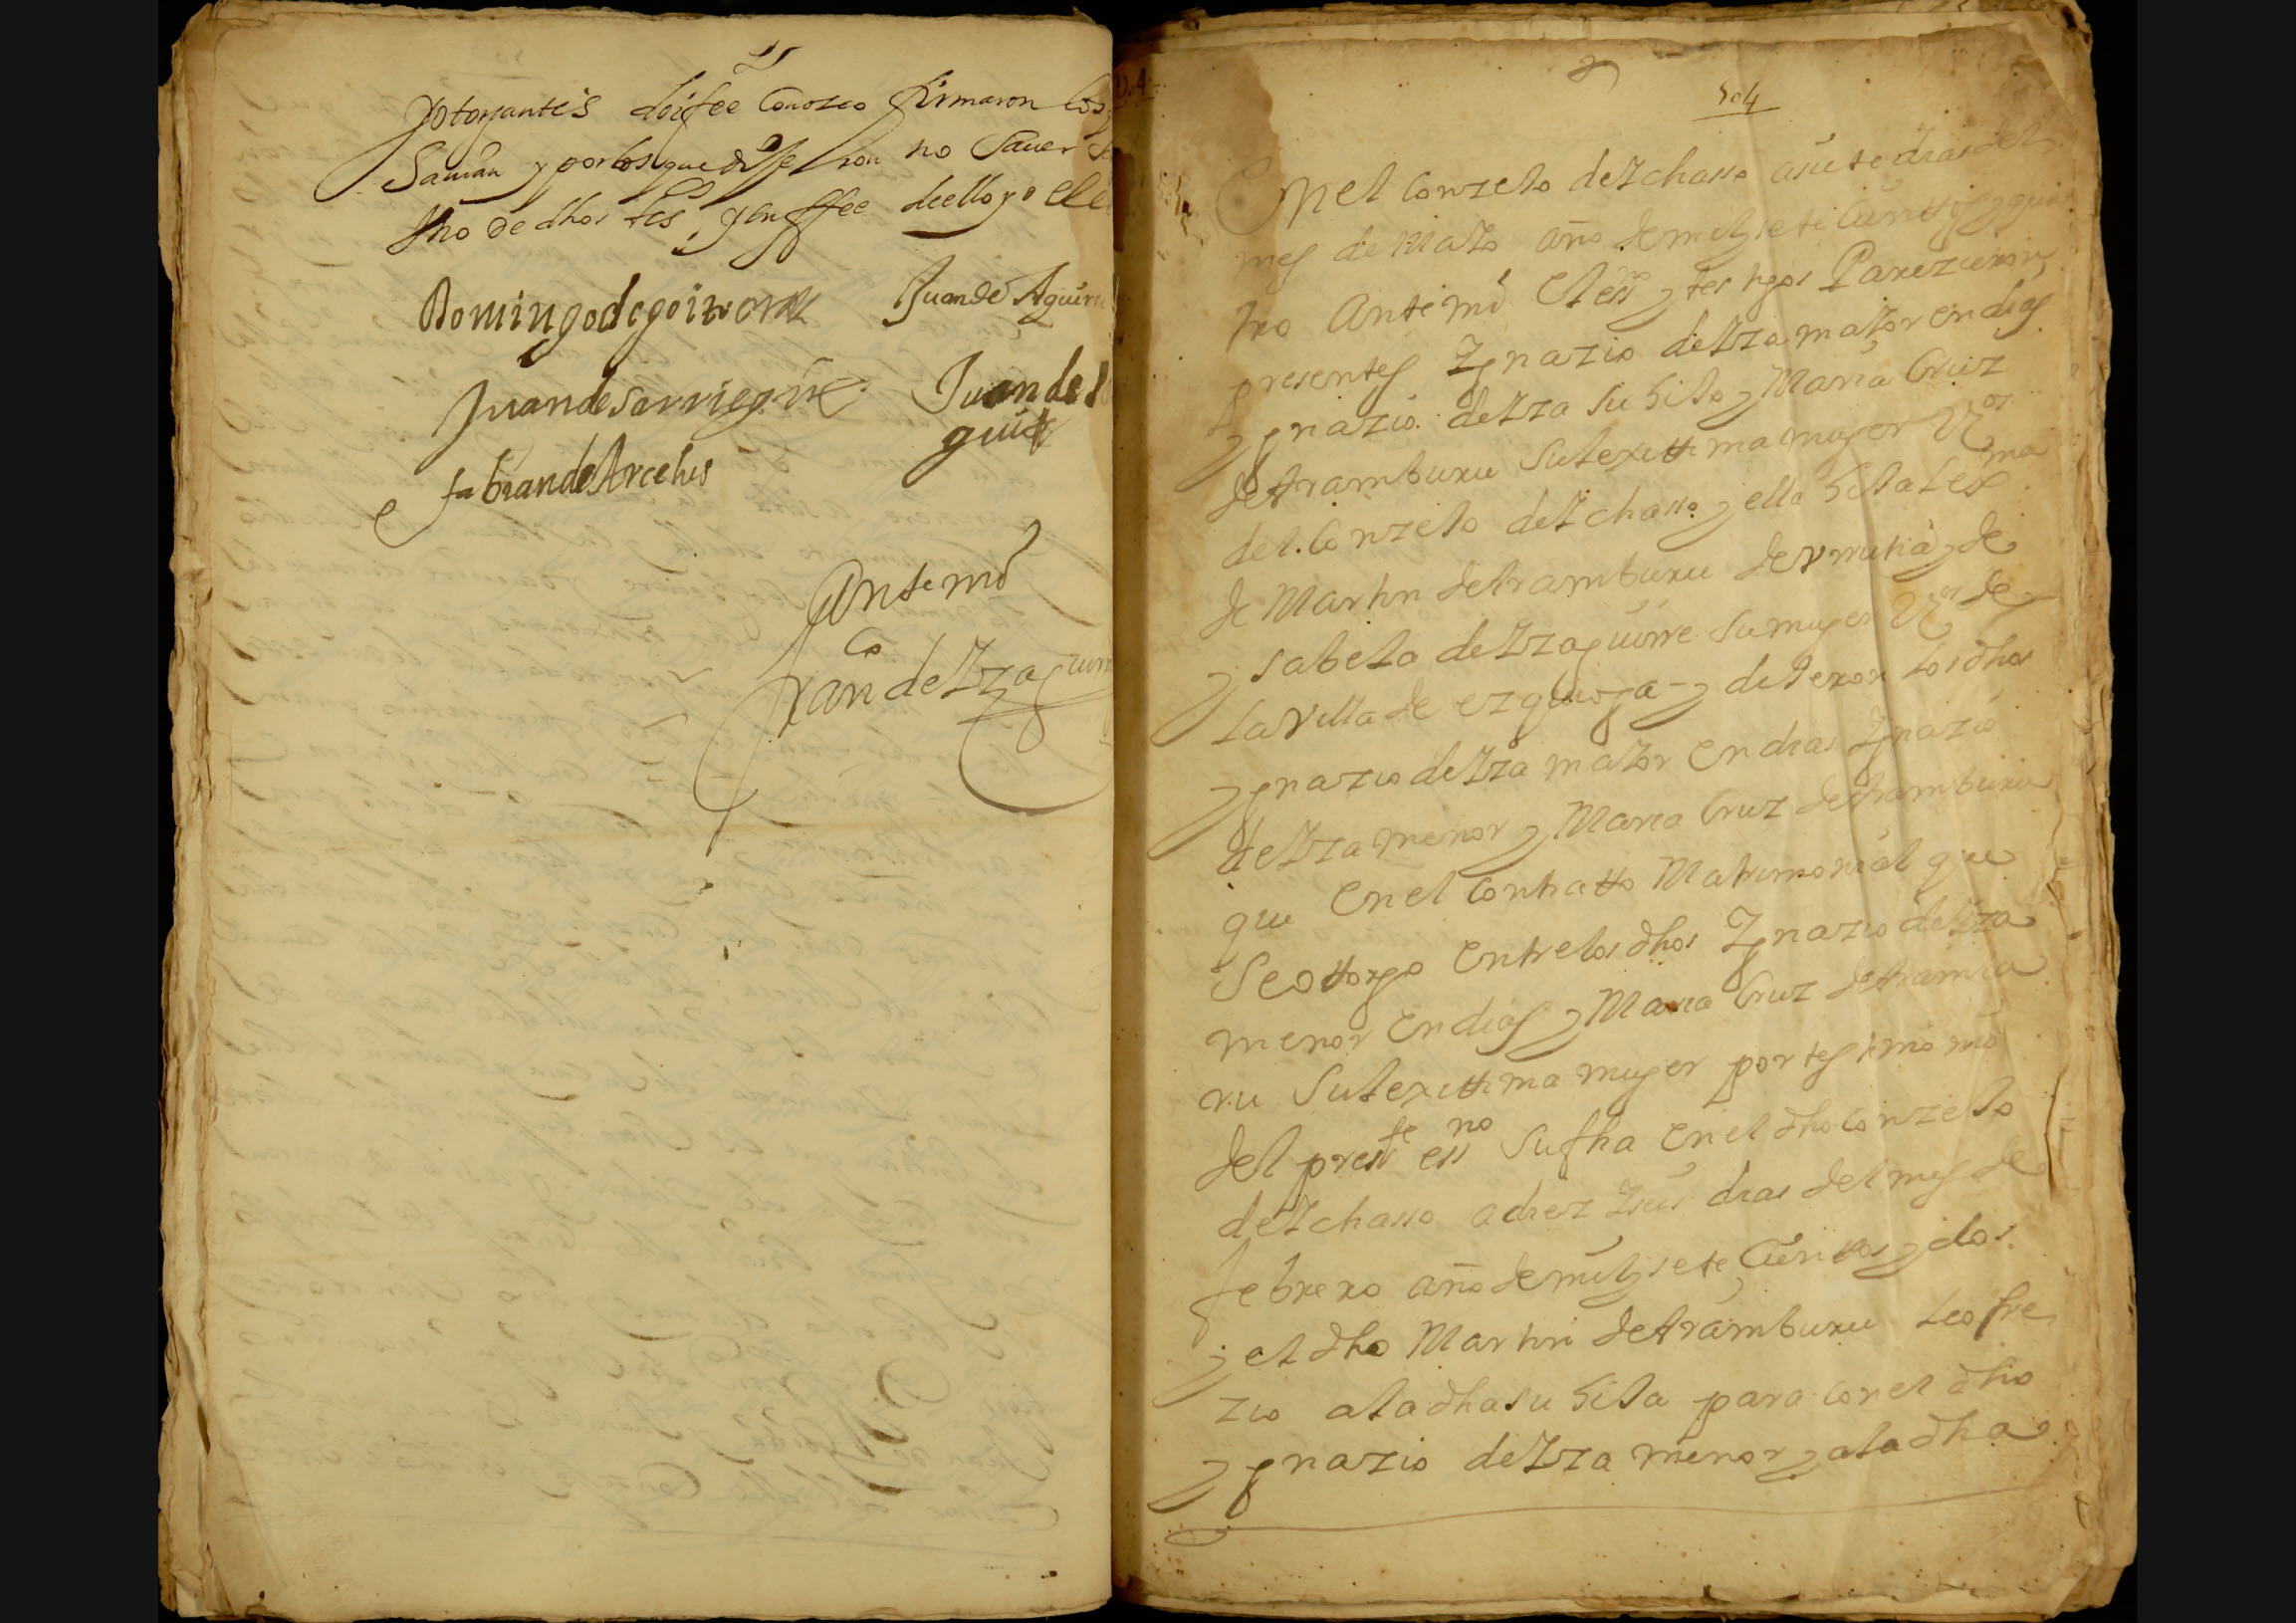 Yotorgantes doi fee Conozco firmaron los q
Sauian y por los que dixeron no Sauer
tno de dhos tes, y en ffee de ello yo el e
Domingo de goitia
Juan de Aguirr
Juan de Sarriegui
Juan de
gui
fabian de Arcelus
Ante mi
Fran de Yzaguirr
504
En el Conzejo de Ychasso a siete dias del
mes de Maio año de mil y siete Cientos y qua
tro Ante mi el essno y testigos Parezieron
presentes Ygnazio de Yza maior en dias
Ygnazio de Yza su hijo y Maria Cruz
de Aramburu su lexittima muger Vos
del Conzejo de Ychasso y ella hija lexma
de Martin de Aramburu de vrrutia y de
Ysabela de Yzaguirre su muger Vos de
la Villa de ezquioga = y dixeron los dhos
Ygnazio de Yza maior en dias Ygnazio
de Yza menor y Maria Cruz de Aramburu
que en el Contratto Matrimonial que
Se ottorgo entre los dhos Ygnazio de Yza
menor en dias y Maria Cruz de Arambu
ru su lexittima muger por testimonio
del preste essno su fha en el dho Conzejo
de Ychasso a diez y seis dias del mes de
febrero año de mil y siete Cientos y dos
y el dho Martin de Aramburu le ofre
zio a la dha su hija para con el dho
Ygnazio de Yza menor y a la dha